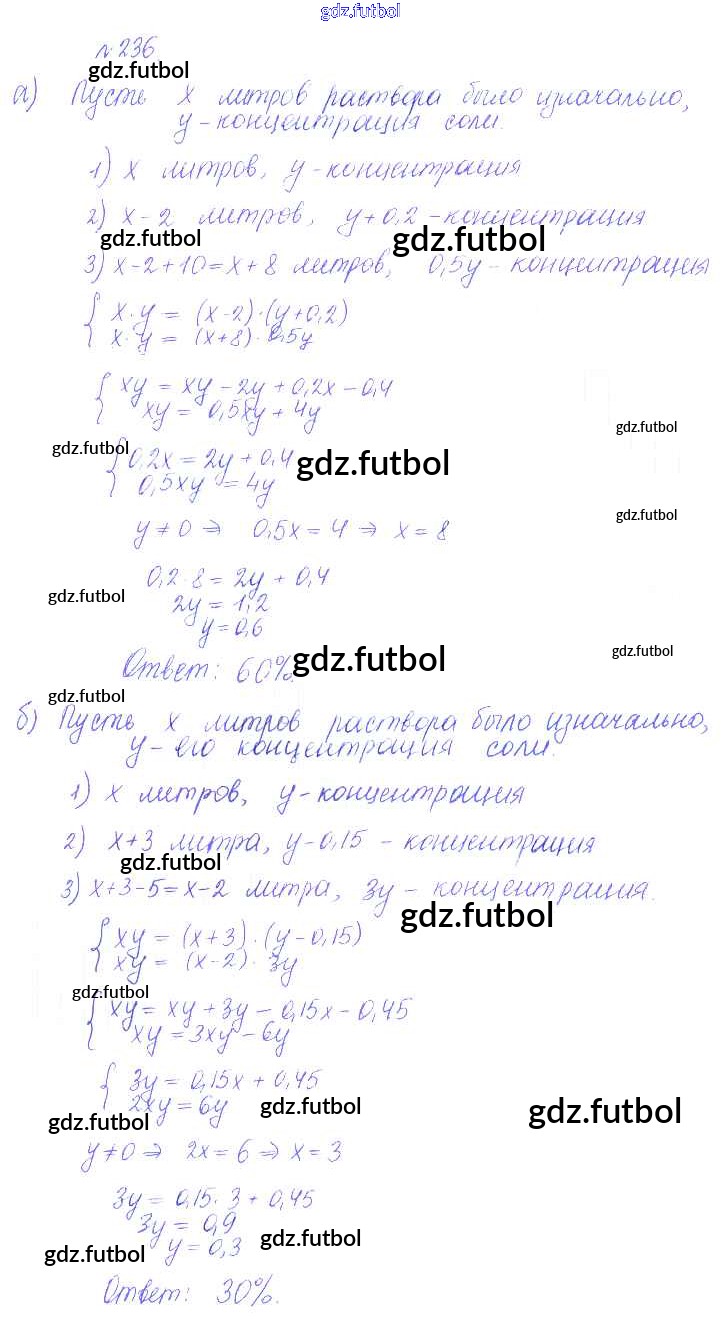 gdz.futbol
№236
gdz.futbol
а) Пусть x литров раствора было изначально,
y - концентрация соли.
1) x литров, y - концентрация
2) x - 2 литров, y + 0,2 - концентрация
gdz.futbol gdz.futbol
3) x - 2 + 10 = x + 8 литров, 0,5y - концентрация
{ x · y = (x - 2) · (y + 0,2)
x · y = (x + 8) · 0,5y
{ xy = xy - 2y + 0,2x - 0,4
xy = 0,5xy + 4y
gdz.futbol
gdz.futbol
{ 0,2x = 2y + 0,4
gdz.futbol
0,5xy = 4y
gdz.futbol
y ≠ 0 ⇒ 0,5x = 4 ⇒ x = 8
0,2 · 8 = 2y + 0,4
gdz.futbol
2y = 1,2
y = 0,6
gdz.futbol
Ответ: 60%.
gdz.futbol
gdz.futbol
б) Пусть x литров раствора было изначально,
y - его концентрация соли.
1) x литров, y - концентрация
2) x + 3 литра, y - 0,15 - концентрация
gdz.futbol
3) x + 3 - 5 = x - 2 литра, 3y - концентрация.
gdz.futbol
{ xy = (x + 3) · (y - 0,15)
xy = (x - 2) · 3y
gdz.futbol
{ xy = xy + 3y - 0,15x - 0,45
xy = 3xy - 6y
{ 3y = 0,15x + 0,45
2xy = 6y
gdz.futbol gdz.futbol gdz.futbol
y ≠ 0 ⇒ 2x = 6 ⇒ x = 3
3y = 0,15 · 3 + 0,45
3y = 0,9
gdz.futbol
y = 0,3
gdz.futbol
Ответ: 30%.